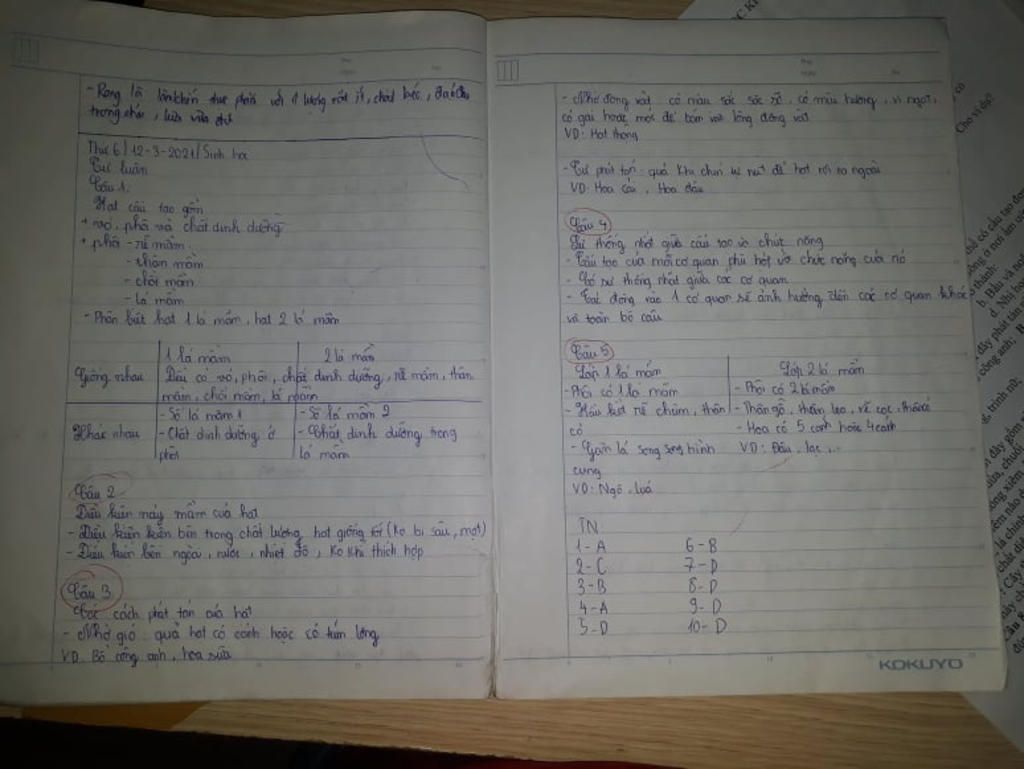 - Rong là
trong cháo, lửa vừa đủ
Thứ 6 / 12-3-2021 / Sinh học
Tự luận
Câu 1.
Hạt cấu tạo gồm
+ vỏ, phôi và chất dinh dưỡng
+ phôi - rễ mầm
- thân mầm
- chồi mầm
- lá mầm
- Phân biệt hạt 1 lá mầm, hạt 2 lá mầm
1 lá mầm 2 lá mầm
Giống nhau Đều có vỏ, phôi, chất dinh dưỡng, rễ mầm, thân
mầm, chồi mầm, lá mầm
Khác nhau - Số lá mầm 1 - Số lá mầm 2
- Chất dinh dưỡng ở - Chất dinh dưỡng trong
phôi lá mầm
Câu 2
Điều kiện nảy mầm của hạt
- Điều kiện kiện bên trong chất lượng hạt giống tốt (Ko bị sâu, mọt)
- Điều kiện bên ngoài, nước, nhiệt độ, Ko Khí thích hợp
Câu 3
Các cách phát tán của hạt
- Nhờ gió quả hạt có cánh hoặc có túm lông
VD. Bồ công anh, hoa sữa
- Nhờ động vật có màu sắc sặc sỡ, có mùi hương, vị ngọt,
có gai hoặc móc để bám vào lông động vật
VD: Hạt thông
- Tự phát tán quả Khi chín tự nứt để hạt rơi ra ngoài
VD: Hoa cải, Hoa đậu
Câu 4
Sự thống nhất giữa cấu tạo và chức năng
- Cấu tạo của mỗi cơ quan phù hợp với chức năng của nó
- Có sự thống nhất giữa các cơ quan
- Tác động vào 1 cơ quan sẽ ảnh hưởng đến các cơ quan khác
và toàn bộ cây
Câu 5
Lớp 1 lá mầm Lớp 2 lá mầm
- Phôi có 1 lá mầm - Phôi có 2 lá mầm
- Hầu hết rễ chùm, thân - Thân gỗ, thân leo, rễ cọc, thân cỏ
cỏ - Hoa có 5 cánh hoặc 4 cánh
- Gân lá song song hình VD: Đậu, lạc, ...
cung
VD: Ngô, luá
TN
1-A 6-B
2-C 7-D
3-B 8-D
4-A 9-D
5-D 10-D
KOKUYO